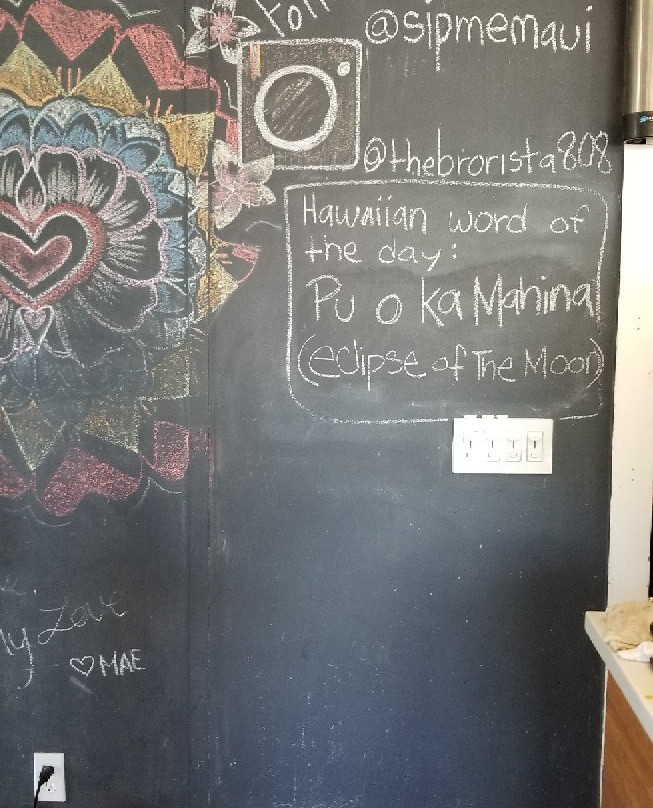 @sipmemaui
@thebrorista808
Hawaiian word of
the day:
Pu o ka Mahina
(eclipse of The Moon)
Love
♡ MAE